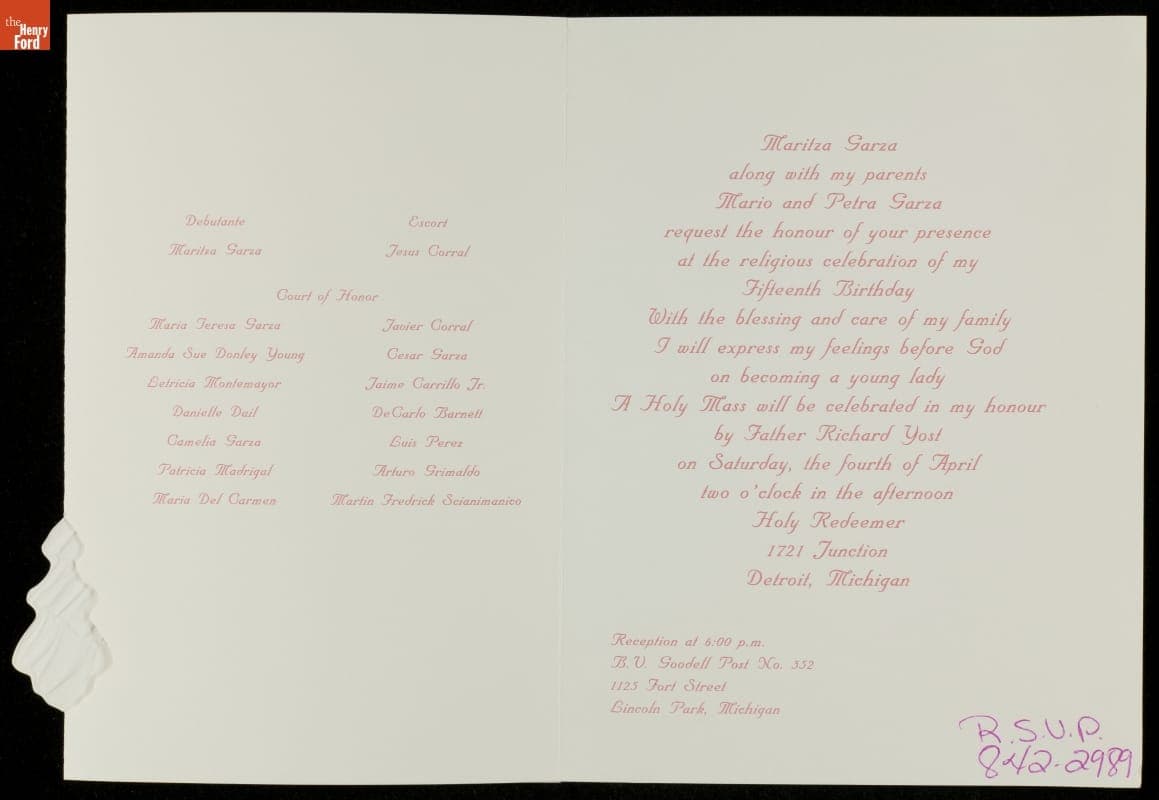 the
Henry
Ford
Debutante Escort
Maritza Garza Jesus Corral
Court of Honor
Maria Teresa Garza Javier Corral
Amanda Sue Donley Young Cesar Garza
Letricia Montemayor Jaime Carrillo Jr.
Danielle Dail DeCarlo Barnett
Camelia Garza Luis Perez
Patricia Madrigal Arturo Grimaldo
Maria Del Carmen Martin Fredrick Scianimanico
Maritza Garza
along with my parents
Mario and Petra Garza
request the honour of your presence
at the religious celebration of my
Fifteenth Birthday
With the blessing and care of my family
I will express my feelings before God
on becoming a young lady
A Holy Mass will be celebrated in my honour
by Father Richard Yost
on Saturday, the fourth of April
two o'clock in the afternoon
Holy Redeemer
1721 Junction
Detroit, Michigan
Reception at 6:00 p.m.
B.V. Goodell Post No. 352
1125 Fort Street
Lincoln Park, Michigan
R.S.V.P.
842-2989